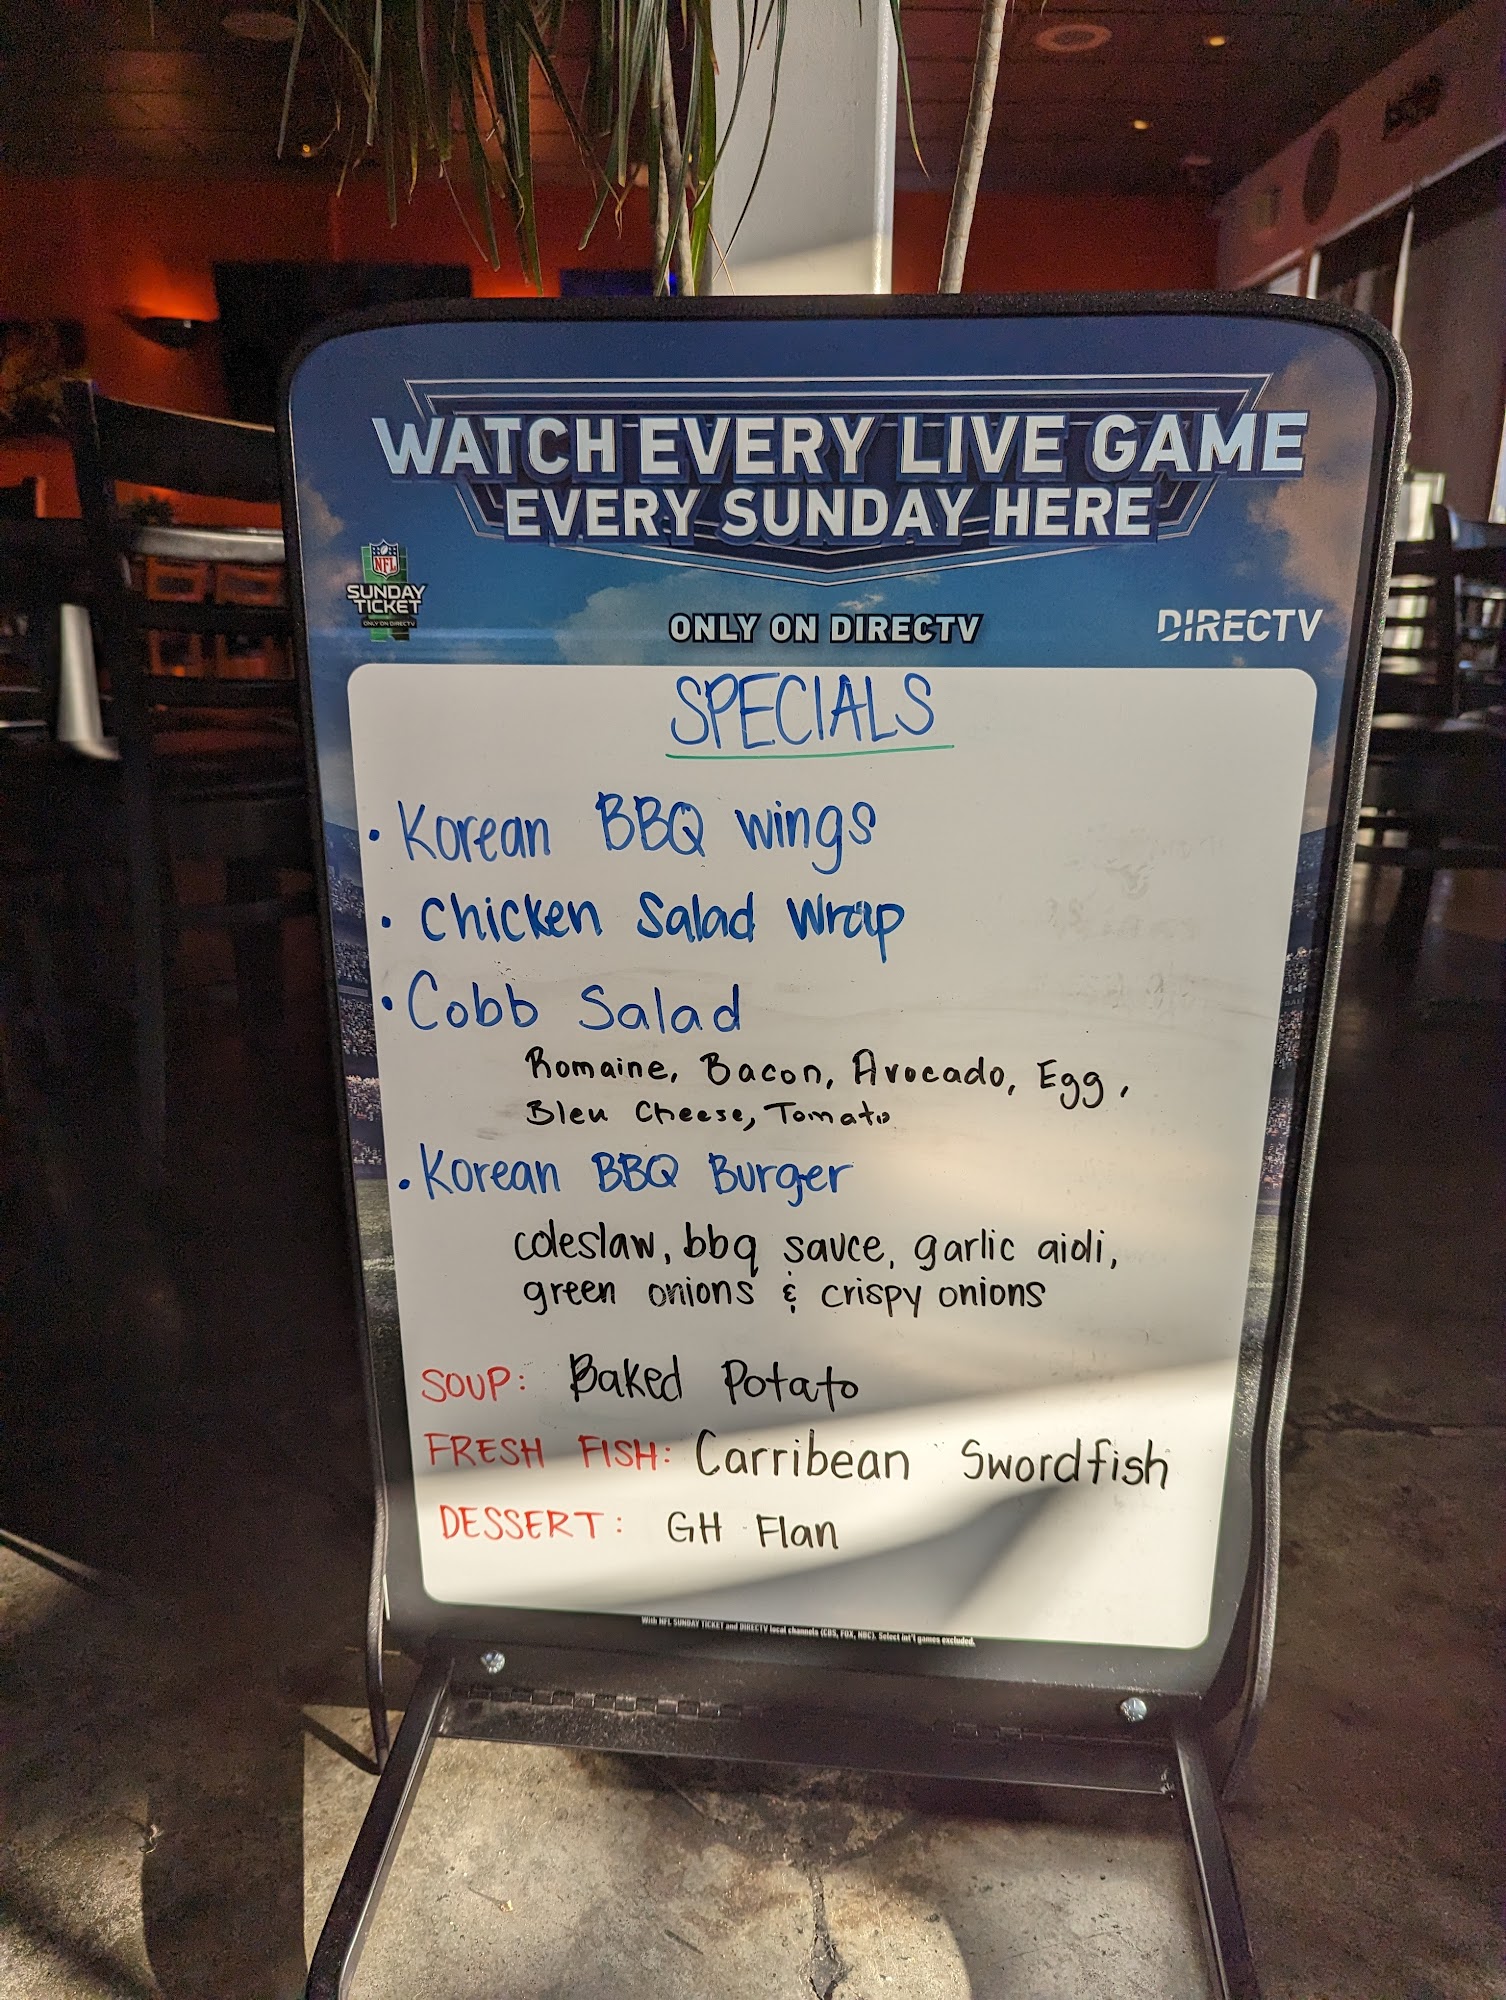 WATCH EVERY LIVE GAME
EVERY SUNDAY HERE
NFL
SUNDAY
TICKET
ONLY ON DIRECTV
ONLY ON DIRECTV
DIRECTV
SPECIALS
• Korean BBQ wings
• Chicken Salad Wrap
• Cobb Salad
Romaine, Bacon, Avocado, Egg,
Bleu Cheese, Tomato
• Korean BBQ Burger
coleslaw, bbq sauce, garlic aioli,
green onions & crispy onions
SOUP: Baked Potato
FRESH FISH: Carribean Swordfish
DESSERT: GH Flan
With NFL SUNDAY TICKET and DIRECTV local channels (CBS, FOX, NBC). Select int'l games excluded.